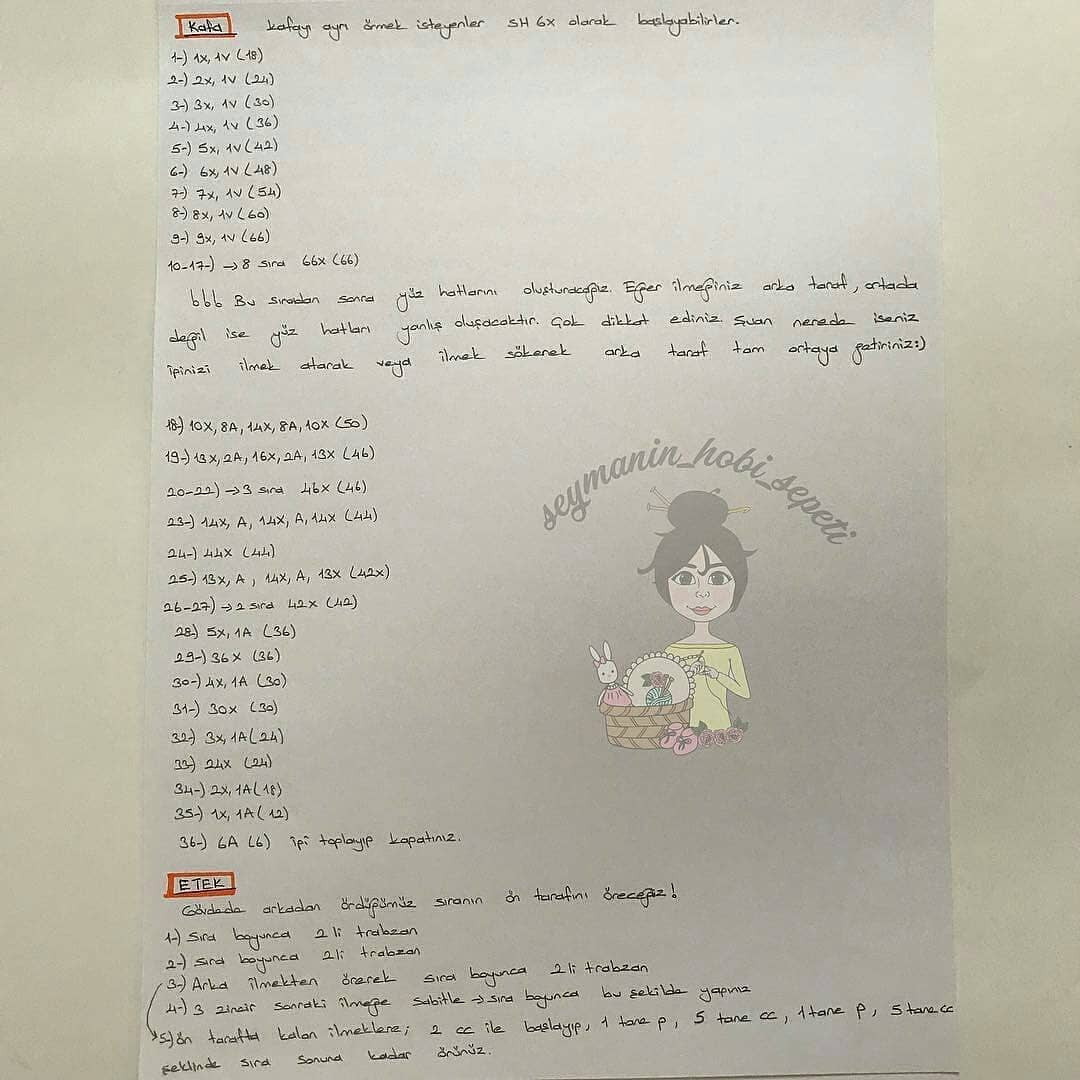 Kafa kafayı ayrı örmek isteyenler SH 6x olarak başlayabilirler.
1-) 1x, 1v (18)
2-) 2x, 1v (24)
3-) 3x, 1v (30)
4-) 4x, 1v (36)
5-) 5x, 1v (42)
6-) 6x, 1v (48)
7-) 7x, 1v (54)
8-) 8x, 1v (60)
9-) 9x, 1v (66)
10-17-) → 8 sıra 66x (66)
Bu sıradan sonra yüz hatlarını oluşturacağız. Eğer ilmeğiniz arka taraf, ortada
değil ise yüz hatları yanlış oluşacaktır. Çok dikkat ediniz. Şuan nerede iseniz
ipinizi ilmek atarak veya ilmek sökerek arka taraf tam ortaya getiriniz:)
18-) 10x, 8A, 14x, 8A, 10x (50)
19-) 13x, 2A, 16x, 2A, 13x (46)
20-22) → 3 sıra 46x (46)
23-) 14x, A, 14x, A, 14x (44)
24-) 44x (44)
25-) 13x, A, 14x, A, 13x (42x)
26-27) → 2 sıra 42x (42)
28-) 5x, 1A (36)
29-) 36x (36)
30-) 4x, 1A (30)
31-) 30x (30)
32-) 3x, 1A (24)
33-) 24x (24)
34-) 2x, 1A (18)
35-) 1x, 1A (12)
36-) 6A (6) ipi toplayıp kapatınız.
seymanin_hobi_sepeti
ETEK
Gövdede arkadan ördüğümüz sıranın ön tarafını öreceğiz!
1-) Sıra boyunca 2li trabzan
2-) Sıra boyunca 2li trabzan
3-) Arka ilmekten örerek sıra boyunca 2li trabzan
4-) 3 zincir sonraki ilmeğe sabitle → sıra boyunca bu şekilde yapınız
5-) ön tarafta kalan ilmeklere; 2 cc ile başlayıp, 1 tane p, 5 tane cc, 1 tane p, 5 tane cc
şeklinde sıra sonuna kadar örünüz.